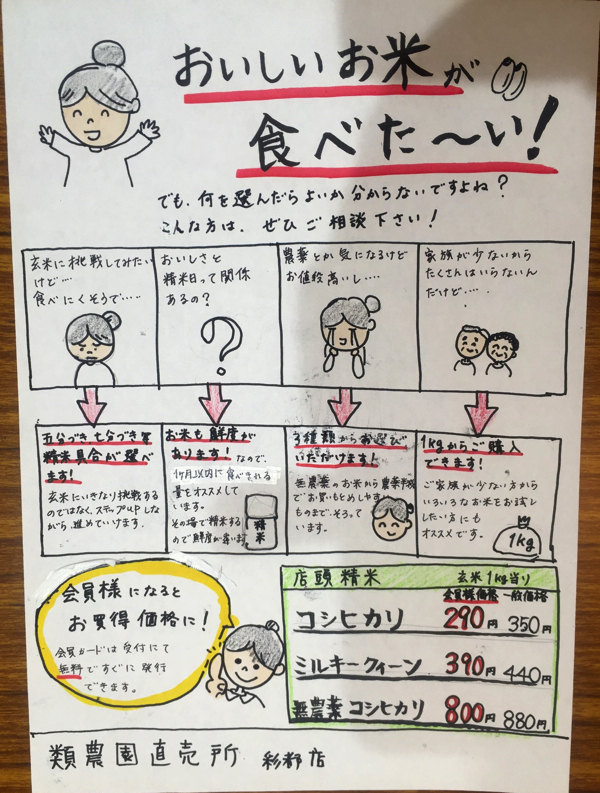 おいしいお米が
食べた〜い!
でも、何を選んだらよいか分からないですよね?
こんな方は、ぜひご相談下さい!
玄米に挑戦してみたい
けど…
食べにくそうで……
おいしさと
精米日って関係
あるの?
農薬とか気になるけど
お値段高いし….
家族が少ないから
たくさんはいらないん
だけど….
五分づき七分づき等
精米具合が選べ
ます!
玄米にいきなり挑戦する
のではなく、ステップUPしな
がら、進めていけます。
お米も鮮度が
あります!なので、
1ヶ月以内に食べきれる
量をオススメして
います。
その場で精米する
ので鮮度が違います
精米
3種類からお選び
いただけます!
無農薬のお米から農薬半減
でお買いもとめしやすい
ものまで、そろって
います。
1kgからご購入
できます!
ご家族が少ない方から
いろいろなお米をお試し
したい方にも
オススメです。
1kg
会員様になると
お買得価格に!
会員カードは受付にて
無料ですぐに発行
できます。
店頭精米 玄米1kg当り
会員様価格 一般価格
コシヒカリ 290円 350円
ミルキークィーン 390円 440円
無農薬コシヒカリ 800円 880円
類農園直売所 彩都店